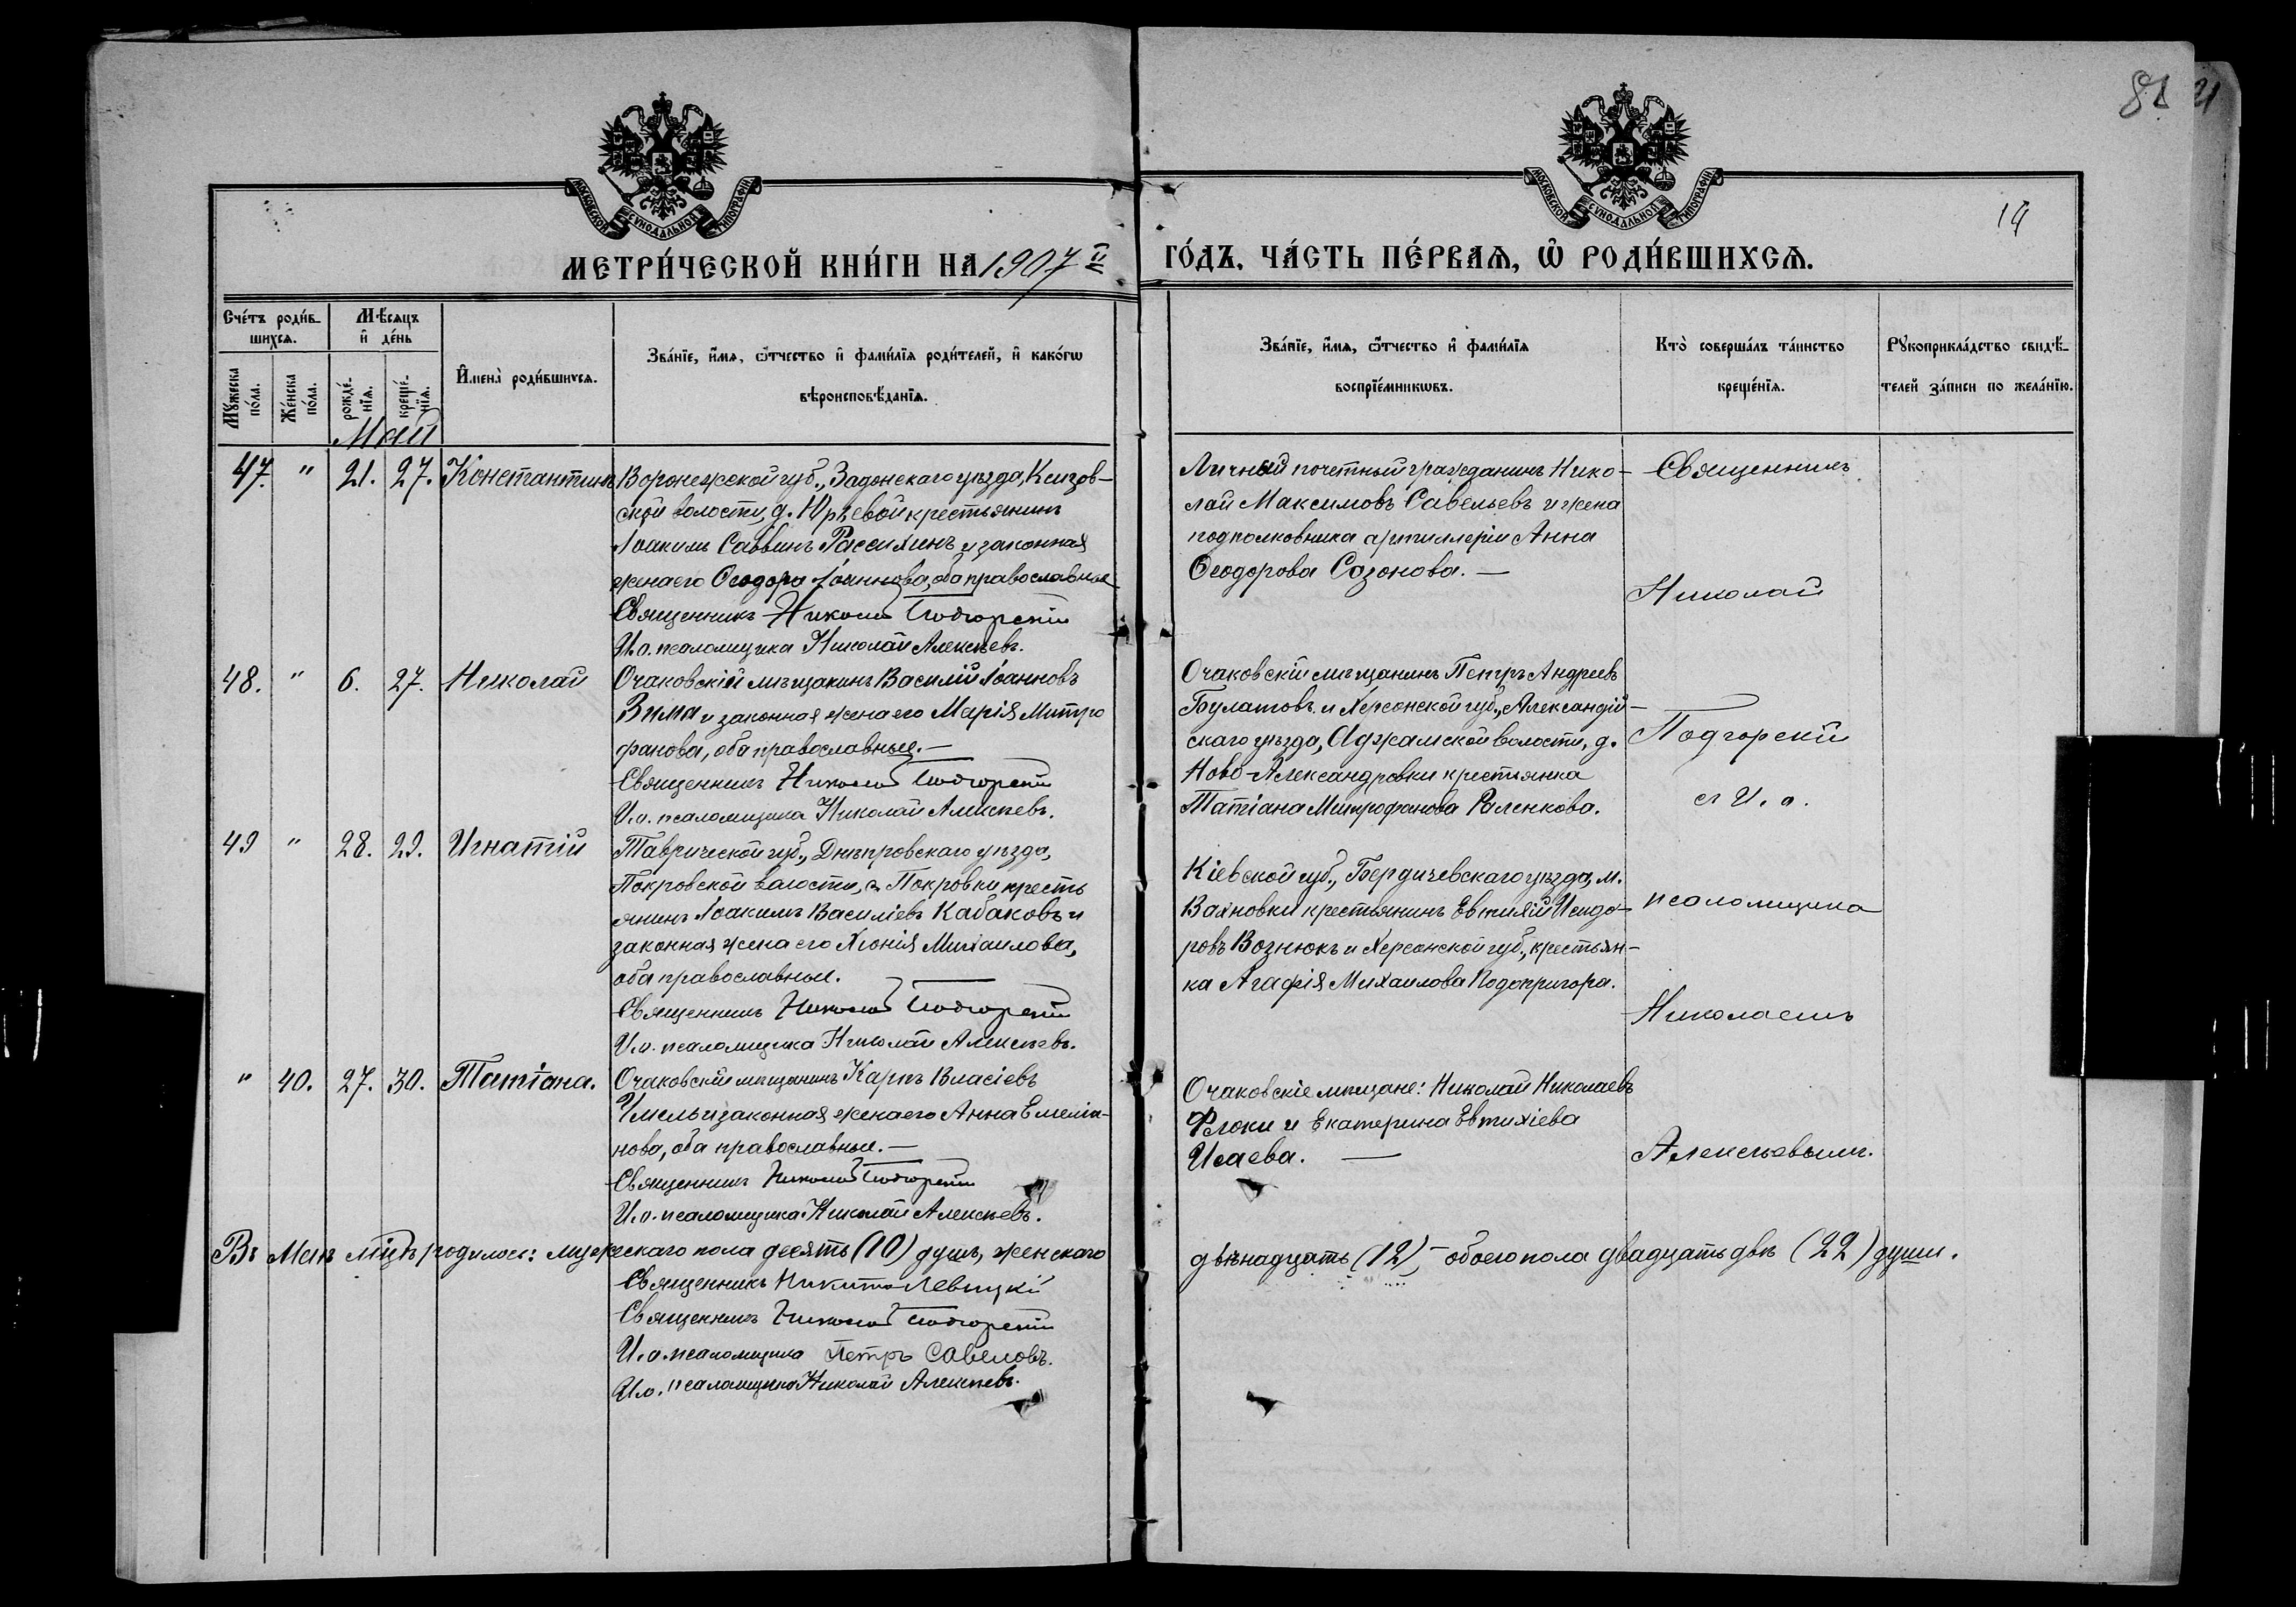 81
21
14
МОСКОВСКОЙ СѴНОДАЛЬНОЙ ТИПОГРАФІИ
МОСКОВСКОЙ СѴНОДАЛЬНОЙ ТИПОГРАФІИ
МЕТРИ́ЧЕСКОЙ КНИ́ГИ НА 1907й ГО́ДЪ, ЧА́СТЬ ПЕ́РВАѦ, Ѽ РОДИ́ВШИХСѦ.
Сче́тъ роди́в-
шихсѧ.
Мѣ́сѧцъ
и҆ де́нь
Мꙋ́жеска
по́ла.
Же́нска
по́ла.
рожде́-
нїѧ.
креще́-
нїѧ.
И҆мена̀ роди́вшихсѧ.
Зва́нїе, и҆́мѧ, ѻ҆́тчество и҆ фами́лїѧ роди́телей, и҆ како́гѡ
вѣроисповѣ́данїѧ.
Зва́нїе, и҆́мѧ, ѻ҆́тчество и҆ фами́лїѧ
воспрїе́мникѡвъ.
Кто̀ соверша́лъ та́инство
креще́нїѧ.
Рꙋкоприкла́дство свидѣ́-
телей за́писи по жела́нїю.
Май
47. " 21. 27. Константинъ
Воронежской губ., Задонскаго уѣзда, Ксизов-
ской волости, д. Юрьевой крестьянинъ
Іоакимъ Саввинъ Рассихинъ и законная
жена его Ѳеодора Іоаннова, оба православные
Священникъ Николай Подгорскій
И.о. псаломщика Николай Алексѣевъ.
Личный почетный гражданинъ Нико-
лай Максимовъ Савельевъ и жена
подполковника артиллеріи Анна
Ѳеодорова Сазонова. —
Священникъ
Николай
48. " 6. 27. Николай
Очаковскій мѣщанинъ Василій Іоанновъ
Зима и законная жена его Марія Митро
фанова, оба православные. —
Священникъ Николай Подгорскій
И.о. псаломщика Николай Алексѣевъ.
Очаковскій мѣщанинъ Петръ Андреевъ
Булатовъ и Херсонской губ., Александрій-
скаго уѣзда, Аджамской волости, д.
Ново-Александровки крестьянка
Татіана Митрофанова Раленкова.
Подгорскій
съ И. о.
49 " 28. 29. Игнатій
Таврической губ., Днѣпровскаго уѣзда,
Покровской волости, с. Покровки кресть
янинъ Іоакимъ Василіевъ Кабаковъ и
законная жена его Хіонія Михаилова,
оба православные.
Священникъ Николай Подгорскій
И.о. псаломщика Николай Алексѣевъ.
Кіевской губ., Бердичевскаго уѣзда, м.
Вахновки крестьянинъ Евтихій Исидо-
ровъ Вознюкъ и Херсонской губ., крестьян-
ка Агафія Михаилова Подопригора.
псаломщика
Николаемъ
" 40. 27. 30. Татіана.
Очаковскій мѣщанинъ Карпъ Власіевъ
Чмель и законная жена его Анна Емеліа-
нова, оба православные. —
Священникъ Николай Подгорскій
И.о. псаломщика Николай Алексѣевъ.
Очаковскіе мѣщане: Николай Николаевъ
Флоки и Екатерина Евтихіева
Исаева. —
Алексѣевымъ.
Въ Маѣ мцѣ родилось: мужескаго пола десять (10) душъ, женскаго двѣнадцать (12), — обоего пола двадцать двѣ (22) души.
Священникъ Никита Левицкій
Священникъ Николай Подгорскій
И.о. псаломщика Петръ Савеловъ.
И.о. псаломщика Николай Алексѣевъ.